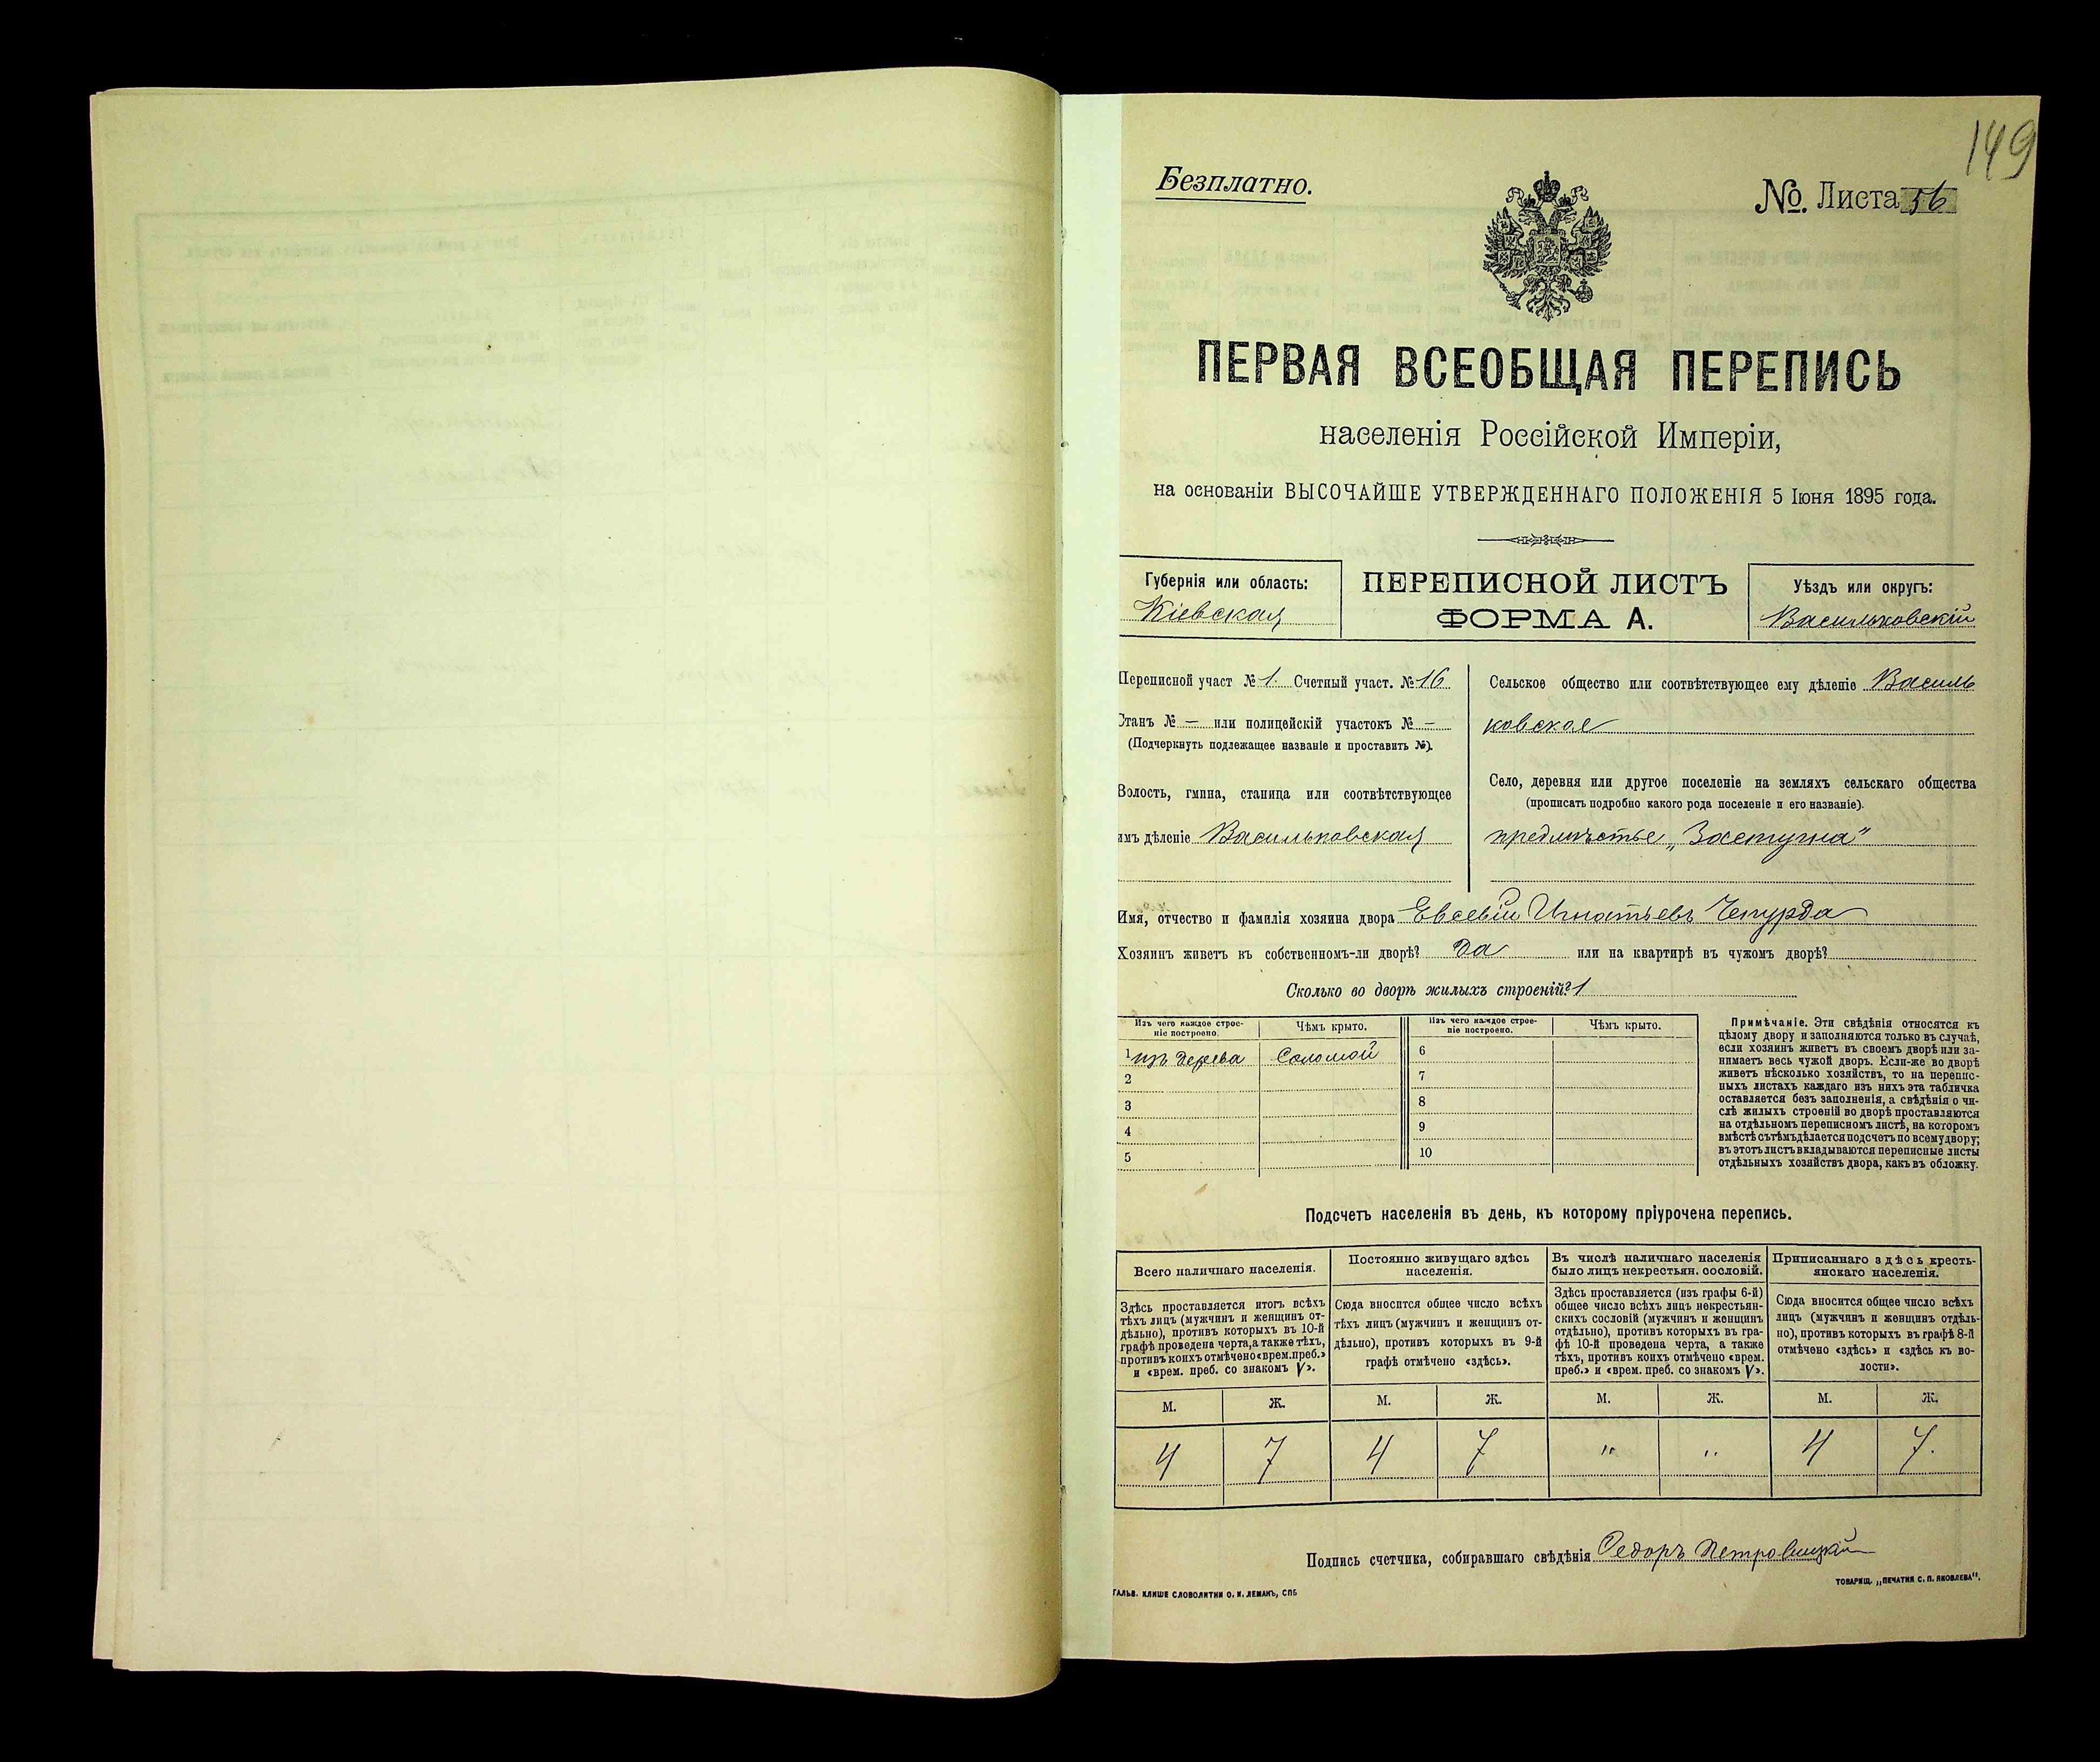 149
Безплатно.
№. Листа 56
ПЕРВАЯ ВСЕОБЩАЯ ПЕРЕПИСЬ
населенія Россійской Имперіи,
на основаніи ВЫСОЧАЙШЕ УТВЕРЖДЕННАГО ПОЛОЖЕНІЯ 5 Іюня 1895 года.
Губернія или область:
Кіевская
ПЕРЕПИСНОЙ ЛИСТЪ
ФОРМА А.
Уѣздъ или округъ:
Васильковскій
Переписной участ № 1. Счетный участ. № 16
Станъ № — или полицейскій участокъ № —
(Подчеркнуть подлежащее названіе и проставить №).
Волость, гмина, станица или соотвѣтствующее
имъ дѣленіе Васильковская
Сельское общество или соотвѣтствующее ему дѣленіе Василь
ковское
Село, деревня или другое поселеніе на земляхъ сельскаго общества
(прописать подробно какого рода поселеніе и его названіе).
предмѣстье „Застугна"
Имя, отчество и фамилія хозяина двора Евсевій Игнатьевъ Чепурда
Хозяинъ живетъ въ собственномъ-ли дворѣ? Да или на квартирѣ въ чужомъ дворѣ?
Сколько во дворѣ жилыхъ строеній? 1
Изъ чего каждое строе-
ніе построено.
Чѣмъ крыто.
Изъ чего каждое строе-
ніе построено.
Чѣмъ крыто.
1 изъ дерева Соломой 6
2 7
3 8
4 9
5 10
Примѣчаніе. Эти свѣдѣнія относятся къ
цѣлому двору и заполняются только въ случаѣ,
если хозяинъ живетъ въ своемъ дворѣ или за-
нимаетъ весь чужой дворъ. Если-же во дворѣ
живетъ нѣсколько хозяйствъ, то на перепис-
ныхъ листахъ каждаго изъ нихъ эта табличка
оставляется безъ заполненія, а свѣдѣнія о чи-
слѣ жилыхъ строеній во дворѣ проставляются
на отдѣльномъ переписномъ листѣ, на которомъ
вмѣстѣ съ тѣмъ дѣлается подсчетъ по всему двору;
въ этотъ листъ вкладываются переписные листы
отдѣльныхъ хозяйствъ двора, какъ въ обложку.
Подсчетъ населенія въ день, къ которому пріурочена перепись.
Всего наличнаго населенія.
Здѣсь проставляется итогъ всѣхъ
тѣхъ лицъ (мужчинъ и женщинъ от-
дѣльно), противъ которыхъ въ 10-й
графѣ проведена черта, а также тѣхъ,
противъ коихъ отмѣчено «врем. преб.»
и «врем. преб. со знакомъ V».
Постоянно живущаго здѣсь
населенія.
Сюда вносится общее число всѣхъ
тѣхъ лицъ (мужчинъ и женщинъ от-
дѣльно), противъ которыхъ въ 9-й
графѣ отмѣчено «здѣсь».
Въ числѣ наличнаго населенія
было лицъ некрестьян. сословій.
Здѣсь проставляется (изъ графы 6-й)
общее число всѣхъ лицъ некрестьян-
скихъ сословій (мужчинъ и женщинъ
отдѣльно), противъ которыхъ въ гра-
фѣ 10-й проведена черта, а также
тѣхъ, противъ коихъ отмѣчено «врем.
преб.» и «врем. преб. со знакомъ V».
Приписаннаго здѣсь кресть-
янскаго населенія.
Сюда вносится общее число всѣхъ
лицъ (мужчинъ и женщинъ отдѣль-
но), противъ которыхъ въ графѣ 8-й
отмѣчено «здѣсь» и «здѣсь къ во-
лости».
М. Ж. М. Ж. М. Ж. М. Ж.
4 7 4 7 " " 4 7.
Подпись счетчика, собиравшаго свѣдѣнія Федоръ
ГАЛЬВ. КЛИШЕ СЛОВОЛИТНИ О. И. ЛЕМАНЪ, СПБ
ТОВАРИЩ. „ПЕЧАТНЯ С. П. ЯКОВЛЕВА".